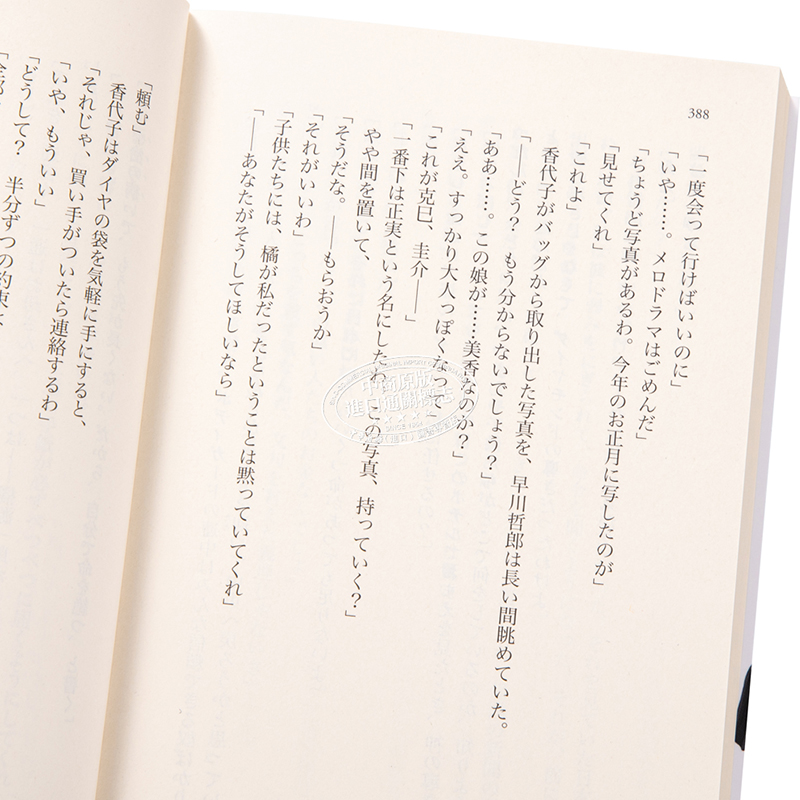 388
「一度会って行けばいいのに」
「いや……。メロドラマはごめんだ」
「ちょうど写真があるわ。今年のお正月に写したのが」
「見せてくれ」
「これよ」
香代子がバッグから取り出した写真を、早川哲郎は長い間眺めていた。
「――どう？　もう分からないでしょう？」
「ああ……。この娘が……美香なのか？」
「ええ。すっかり大人っぽくなって
「これが克巳、圭介――」
「一番下は正実という名にしたわ。この写真、持っていく？」
やや間を置いて、
「そうだな。――もらおうか」
「それがいいわ」
「子供たちには、橘が私だったということは黙っていてくれ」
「――あなたがそうしてほしいなら」
「頼む」
香代子はダイヤの袋を気軽に手にすると、
「それじゃ、買い手がついたら連絡するわ」
「いや、もういい」
「どうして？　半分ずつの約束